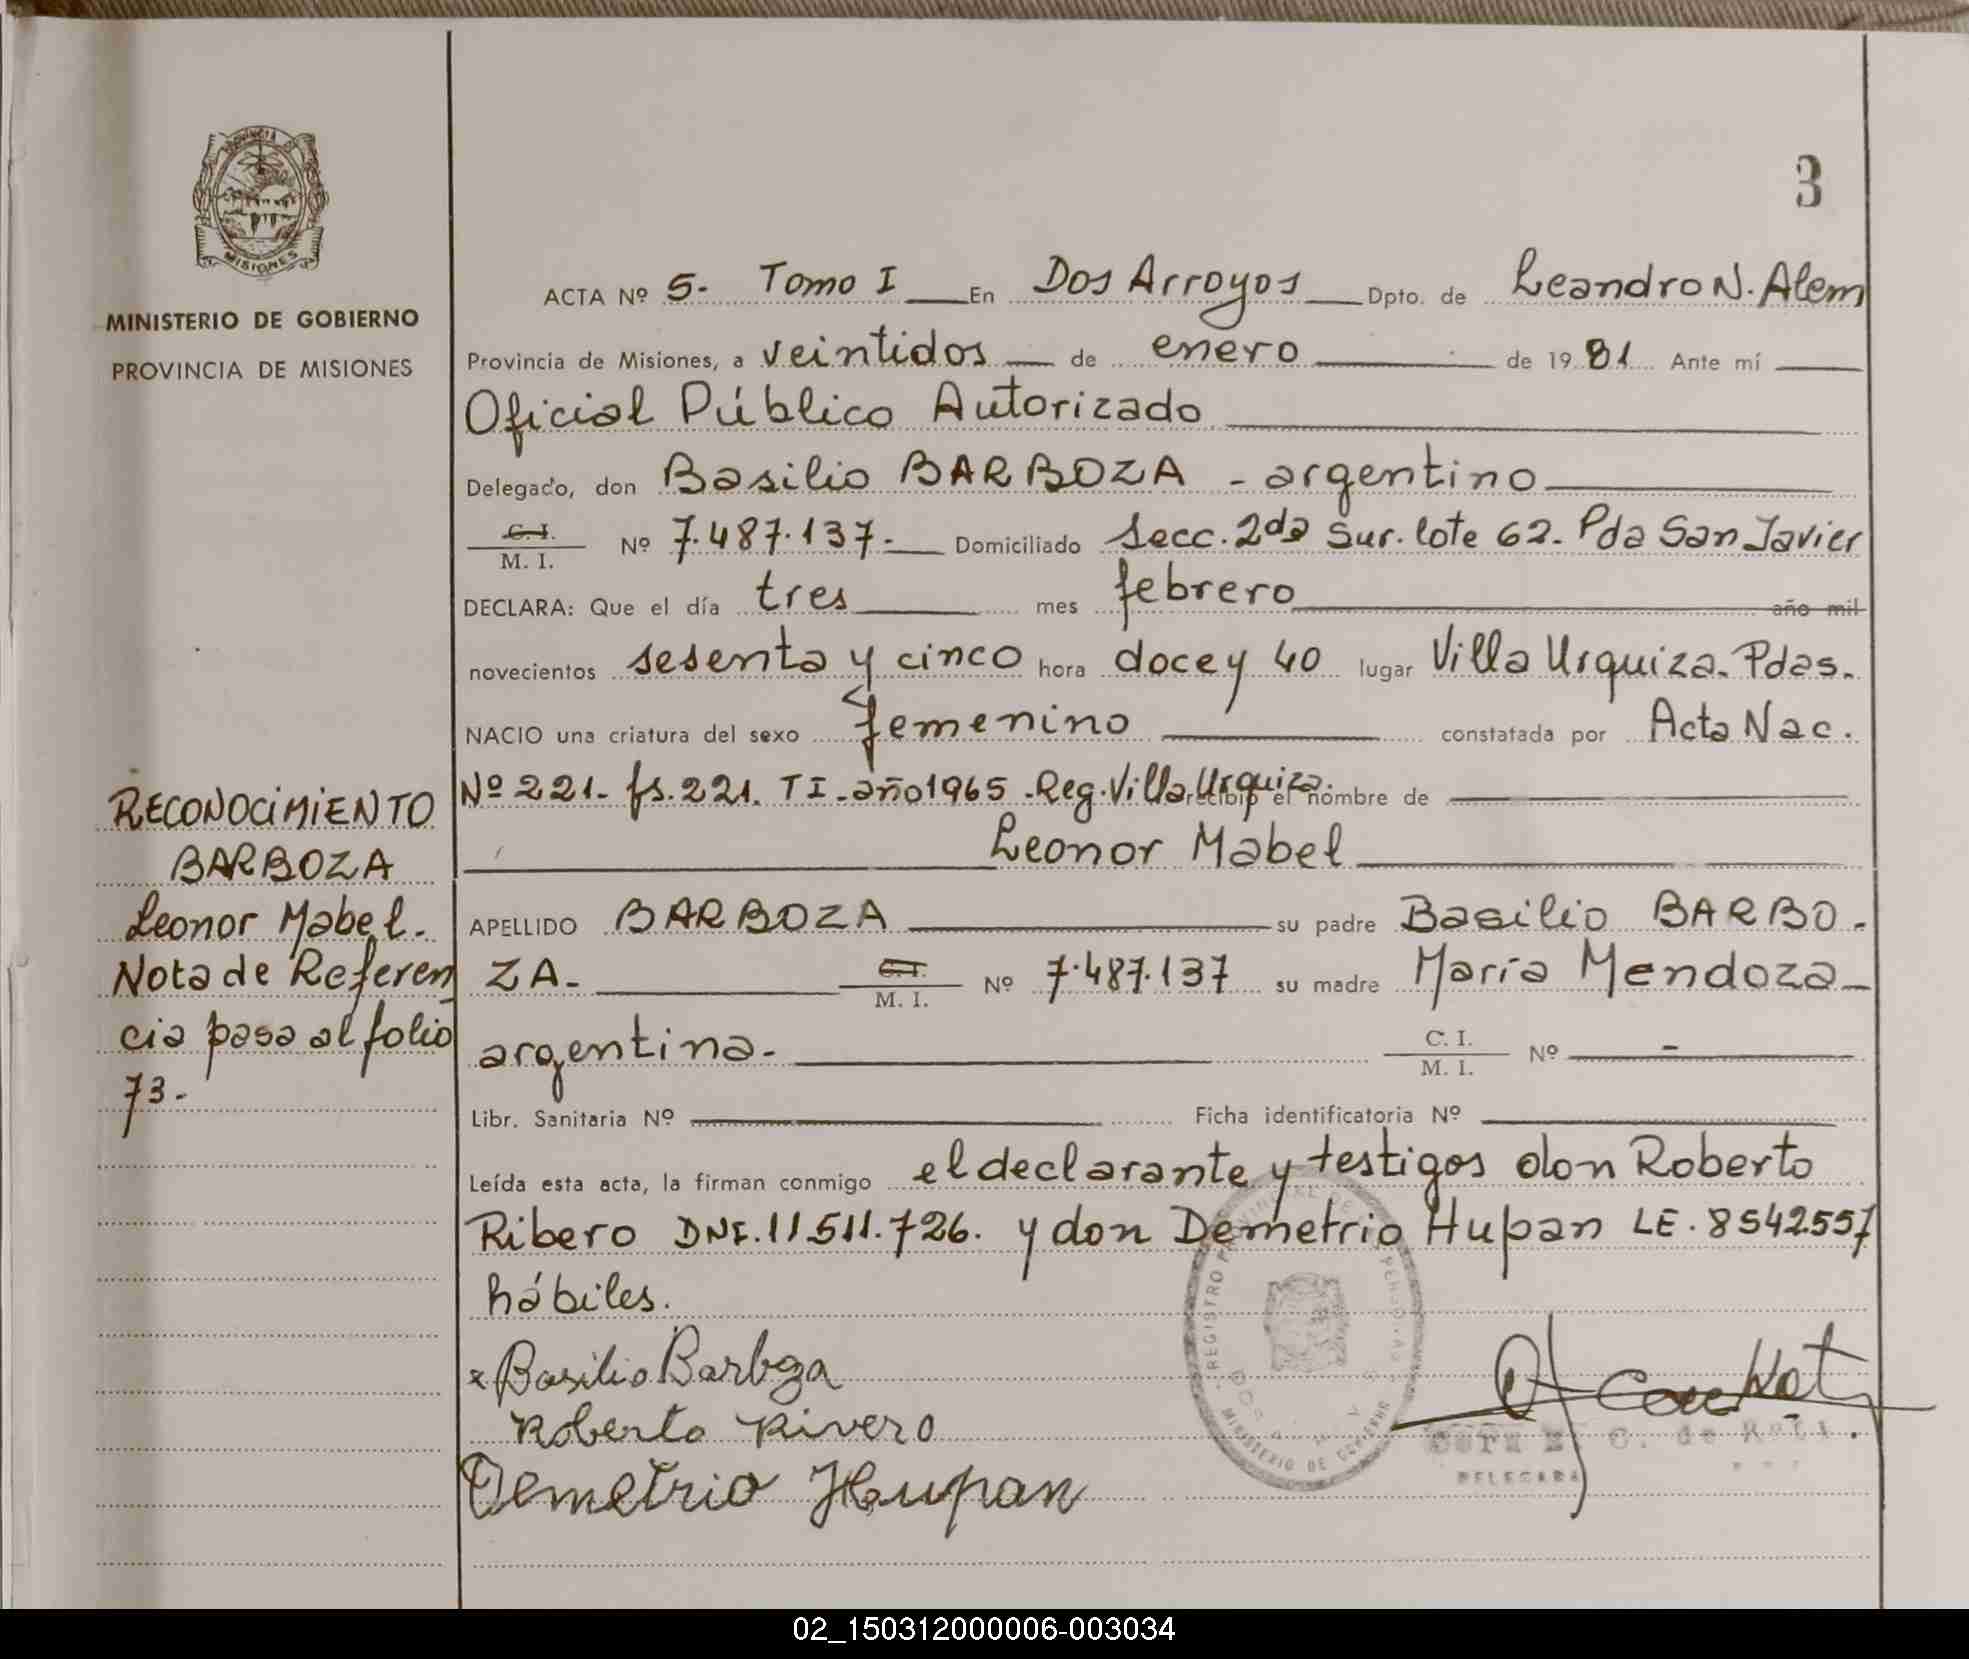 3
PROVINCIA
MISIONES
MINISTERIO DE GOBIERNO
PROVINCIA DE MISIONES
ACTA Nº 5- Tomo I En Dos Arroyos Dpto. de Leandro N. Alem
Provincia de Misiones, a veintidos de enero de 19 81 Ante mí
Oficial Público Autorizado
Delegado, don Basilio BARBOZA - argentino
C. I.
M. I. Nº 7.487.137.- Domiciliado Secc. 2da Sur. lote 62. Pda San Javier
DECLARA: Que el día tres mes febrero año mil
novecientos sesenta y cinco hora doce y 40 lugar Villa Urquiza. Pdas.
NACIO una criatura del sexo femenino constatada por Acta Nac.
Nº 221- fs. 221. TI - año 1965 - Reg. Villa Urquiza. recibió el nombre de
Leonor Mabel
APELLIDO BARBOZA su padre Basilio BARBO-
ZA.- C. I.
M. I. Nº 7.487.137 su madre María Mendoza-
argentina.- C. I.
M. I. Nº -
Libr. Sanitaria Nº Ficha identificatoria Nº
Leída esta acta, la firman conmigo el declarante y testigos don Roberto
Ribero DNI. 11511.726. y don Demetrio Hupan LE. 8542.557
hábiles.
x Basilio Barboza
Roberto Rivero
Demetrio Hupan
RECONOCIMIENTO
BARBOZA
Leonor Mabel.-
Nota de Referen
cia pasa al folio
73.-
REGISTRO PROVINCIAL DE
MINISTERIO DE GOBIERNO
DELEGADA
02_150312000006-003034